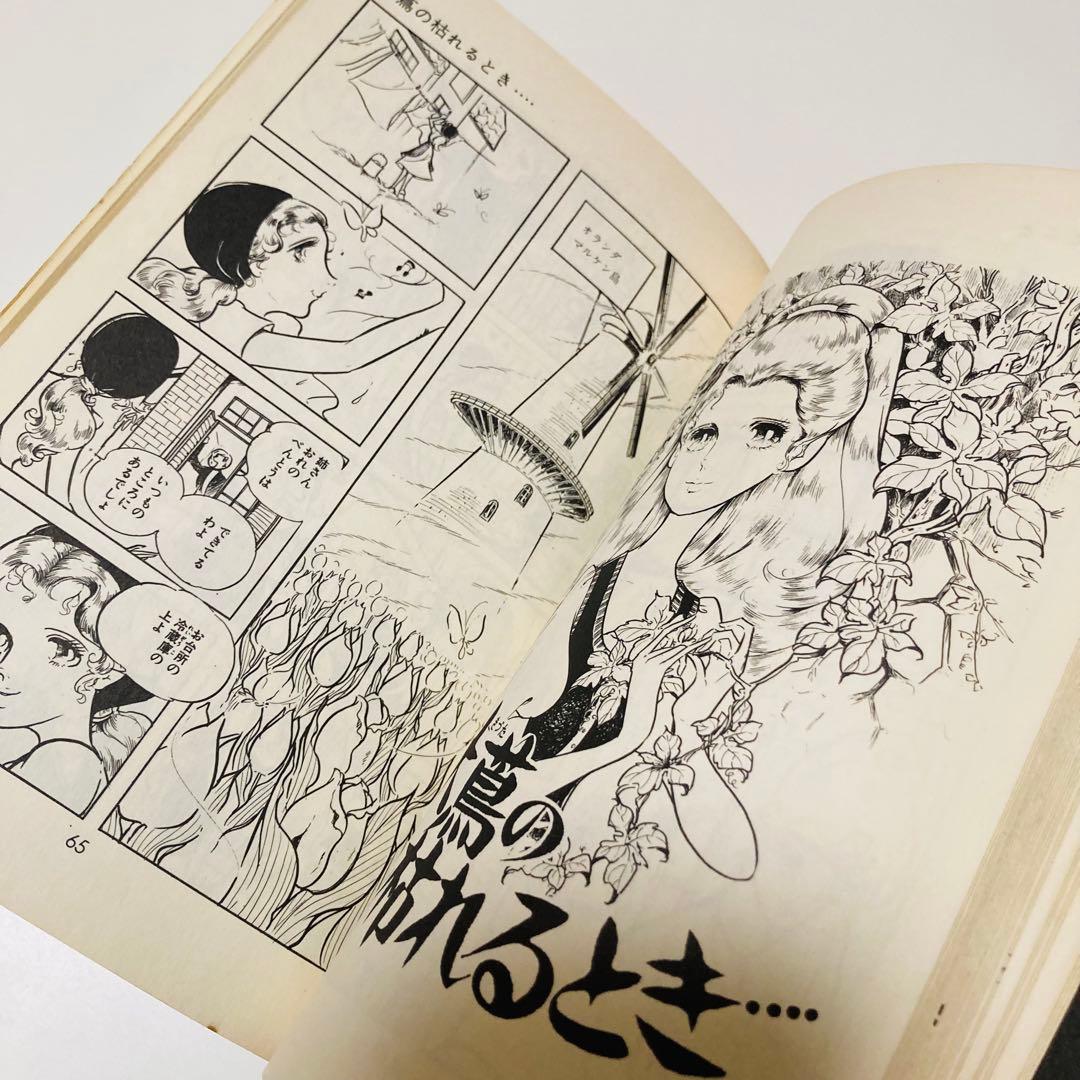 蔦の
枯れるとき‥‥
蔦の枯れるとき‥‥
オランダ
マルケン島
姉さん
おれの
べんとうは
できてる
わよ
いつもの
ところに
あるでしょ
お台所の
冷蔵庫の
上よ
65